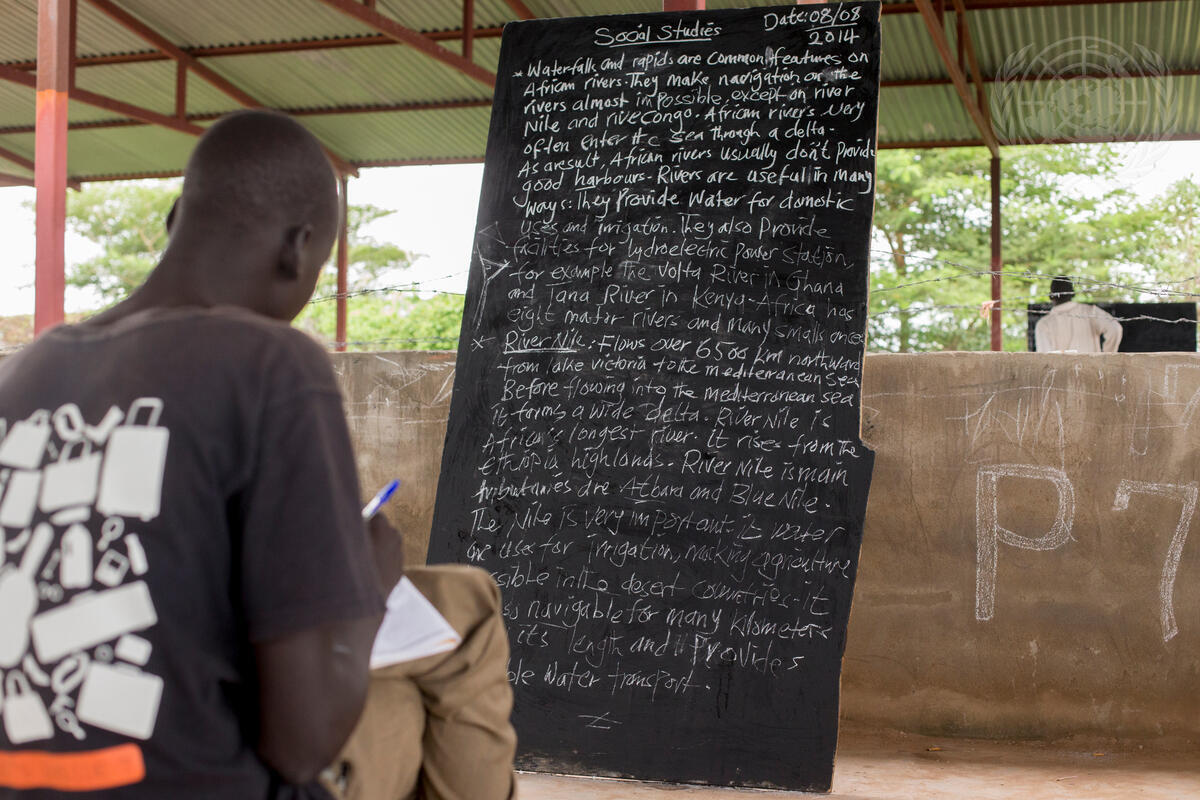 Social Studies
Date: 08/08
2014
* Waterfalls and rapids are common features on
African rivers. They make navigation on the
rivers almost impossible except on river
Nile and rive Congo. African rivers very
often enter the sea through a delta.
As a result, African rivers usually don't provide
good harbours. Rivers are useful in many
ways: They Provide water for domestic
uses and irrigation. They also Provide
facilities for hydroelectric Power station,
for example The Volta River in Ghana
and Tana River in Kenya. Africa has
eight major rivers and many smalls ones
* River Nile. Flows over 6500 km northward
from lake victoria to the mediterranean sea
Before flowing into the mediterranean sea
it forms a wide Delta. River Nile is
Africa's longest river. It rises from the
ethiopia highlands. River Nile is main
tributaries are Atbara and Blue Nile.
The Nile is very important. it water
are use for irrigation, making agriculture
in the desert countries. it
navigable for many kilometers
its length and Provides
Water transport.
P7